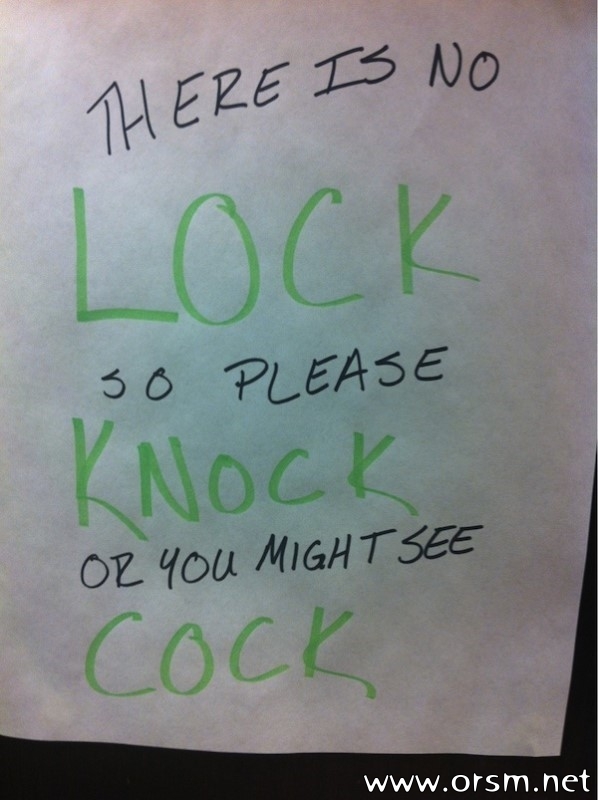 THERE IS NO
LOCK
SO PLEASE
KNOCK
OR YOU MIGHT SEE
COCK
www.orsm.net